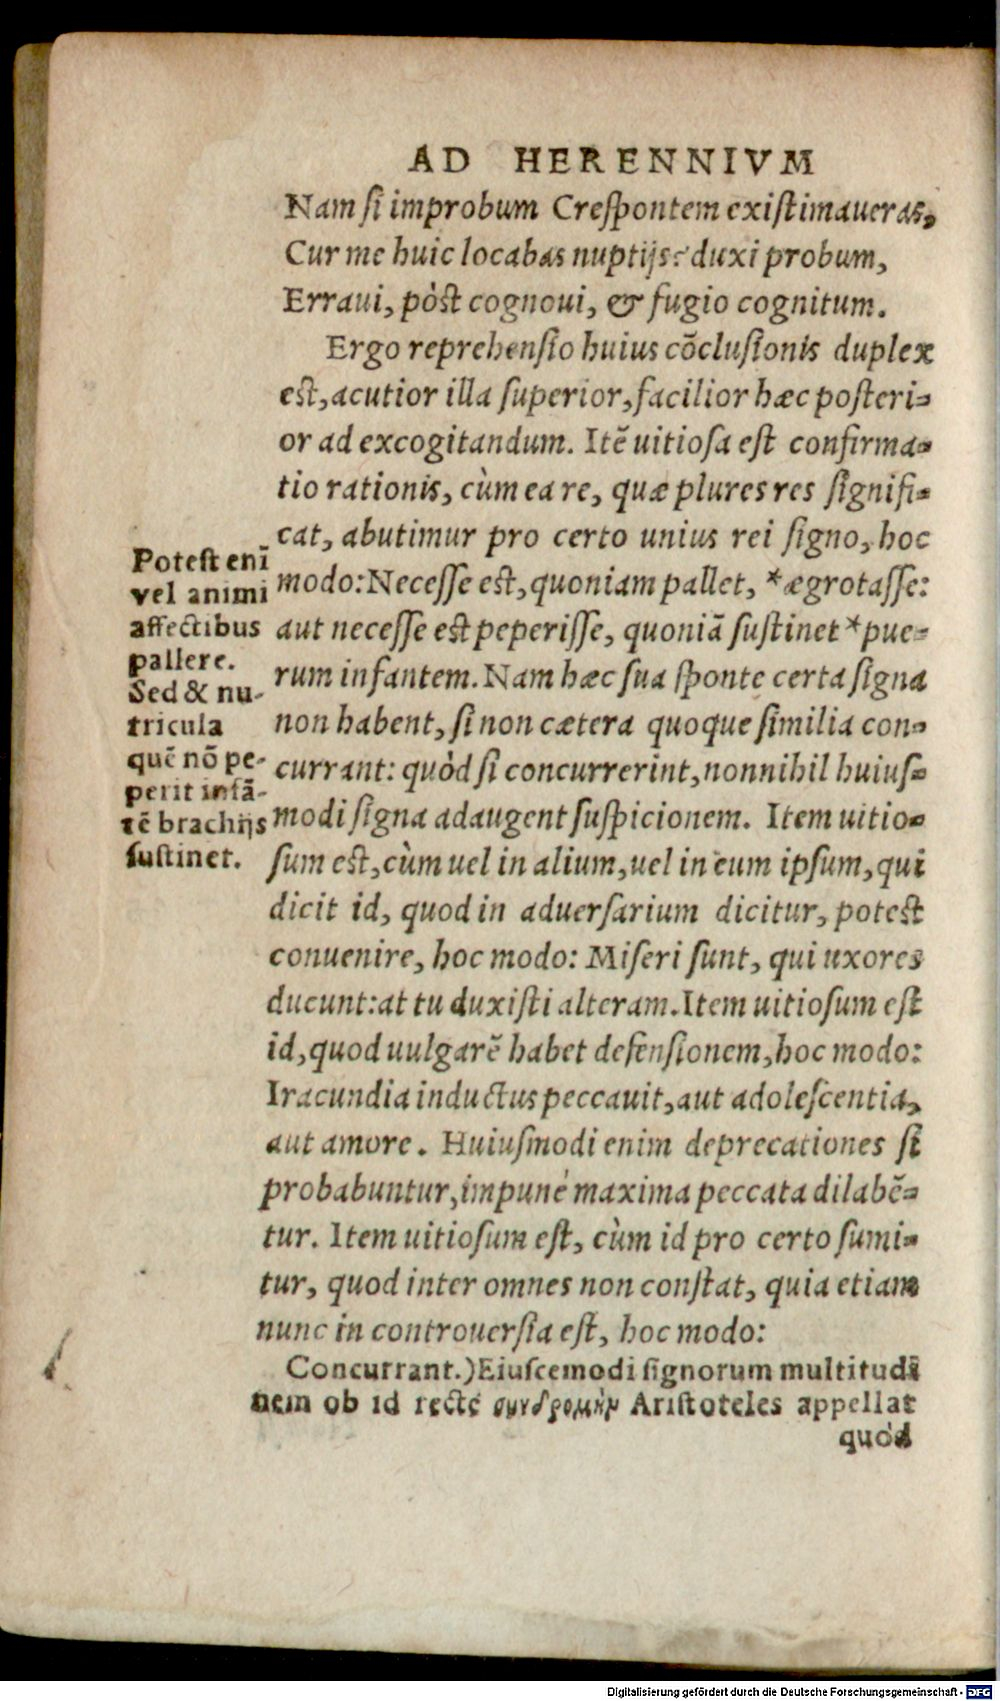 AD HERENNIVM
Nam ſi improbum Creſpontem exiſtimaueras,
Cur me huic locabas nuptijs? duxi probum,
Erraui, pòſt cognoui, & fugio cognitum.
Ergo reprehenſio huius cōcluſionis duplex
eſt, acutior illa ſuperior, facilior hæc poſteri-
or ad excogitandum. Itē uitioſa eſt confirma-
tio rationis, cùm ea re, quæ plures res ſignifi-
cat, abutimur pro certo unius rei ſigno, hoc
modo: Neceſſe eſt, quoniam pallet, *ægrotaſſe:
aut neceſſe eſt peperiſſe, quoniā ſuſtinet *pue-
rum infantem. Nam hæc ſua ſponte certa ſigna
non habent, ſi non cætera quoque ſimilia con-
currant: quòd ſi concurrerint, nonnihil huiuſ-
modi ſigna adaugent ſuſpicionem. Item uitio-
ſum eſt, cùm uel in alium, uel in eum ipſum, qui
dicit id, quod in aduerſarium dicitur, poteſt
conuenire, hoc modo: Miſeri ſunt, qui uxores
ducunt: at tu duxiſti alteram. Item uitioſum eſt
id, quod uulgarē habet defenſionem, hoc modo:
Iracundia inductus peccauit, aut adoleſcentia,
aut amore. Huiuſmodi enim deprecationes ſi
probabuntur, impunè maxima peccata dilabē-
tur. Item uitioſum eſt, cùm id pro certo ſumi-
tur, quod inter omnes non conſtat, quia etiam
nunc in controuerſia eſt, hoc modo:
Poteſt enī
vel animi
affectibus
pallere.
Sed & nu-
tricula
quē nō pe-
perit infā-
tē brachijs
ſuſtinet.
Concurrant.) Eiuſcemodi ſignorum multitudi
nem ob id rectè συνδρομὴν Ariſtoteles appellat
quòd
Digitalisierung gefördert durch die Deutsche Forschungsgemeinschaft - DFG